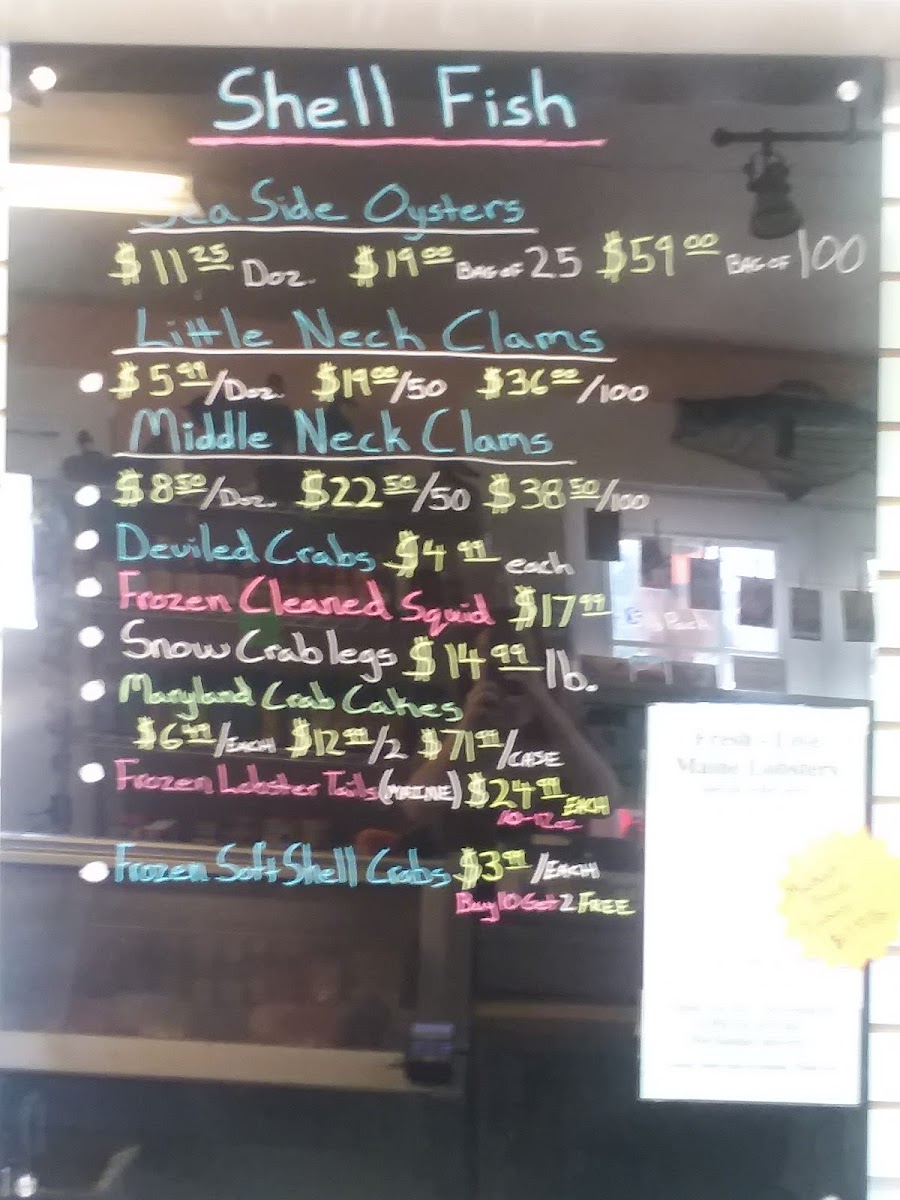 Shell Fish
Sea Side Oysters
$11.25 Doz. $19.00 BAG OF 25 $59.00 BAG OF 100
Little Neck Clams
$5.99/Doz. $19.00/50 $36.00/100
Middle Neck Clams
$8.50/Doz. $22.50/50 $38.50/100
Deviled Crabs $4.99 each
Frozen Cleaned Squid $17.99
Snow Crab legs $14.99 lb.
Maryland Crab Cakes
$6.99/EACH $12.99/2 $71.99/CASE
Frozen Lobster Tails (MAINE) $24.99 EACH
10-12oz
Frozen Soft Shell Crabs $3.99/EACH
Buy 10 Get 2 FREE
Fresh - Live
Maine Lobsters